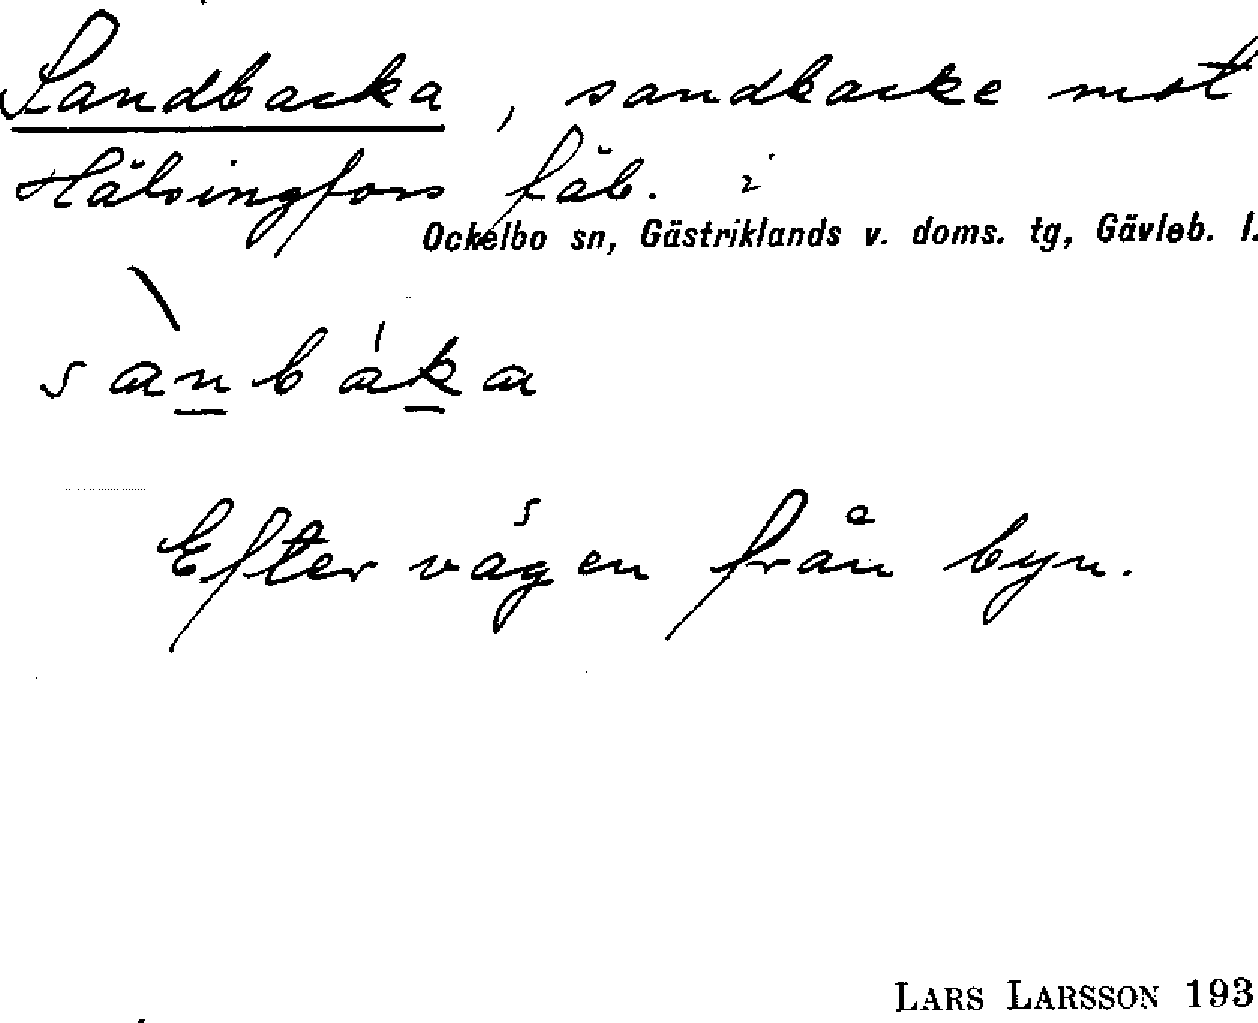 Sandbacka, sandbacke mot
Hälsingfors fäb. i
Ockelbo sn, Gästriklands v. doms. tg, Gävleb. l.
sànbáka
Efter vägen från byn.
LARS LARSSON 193